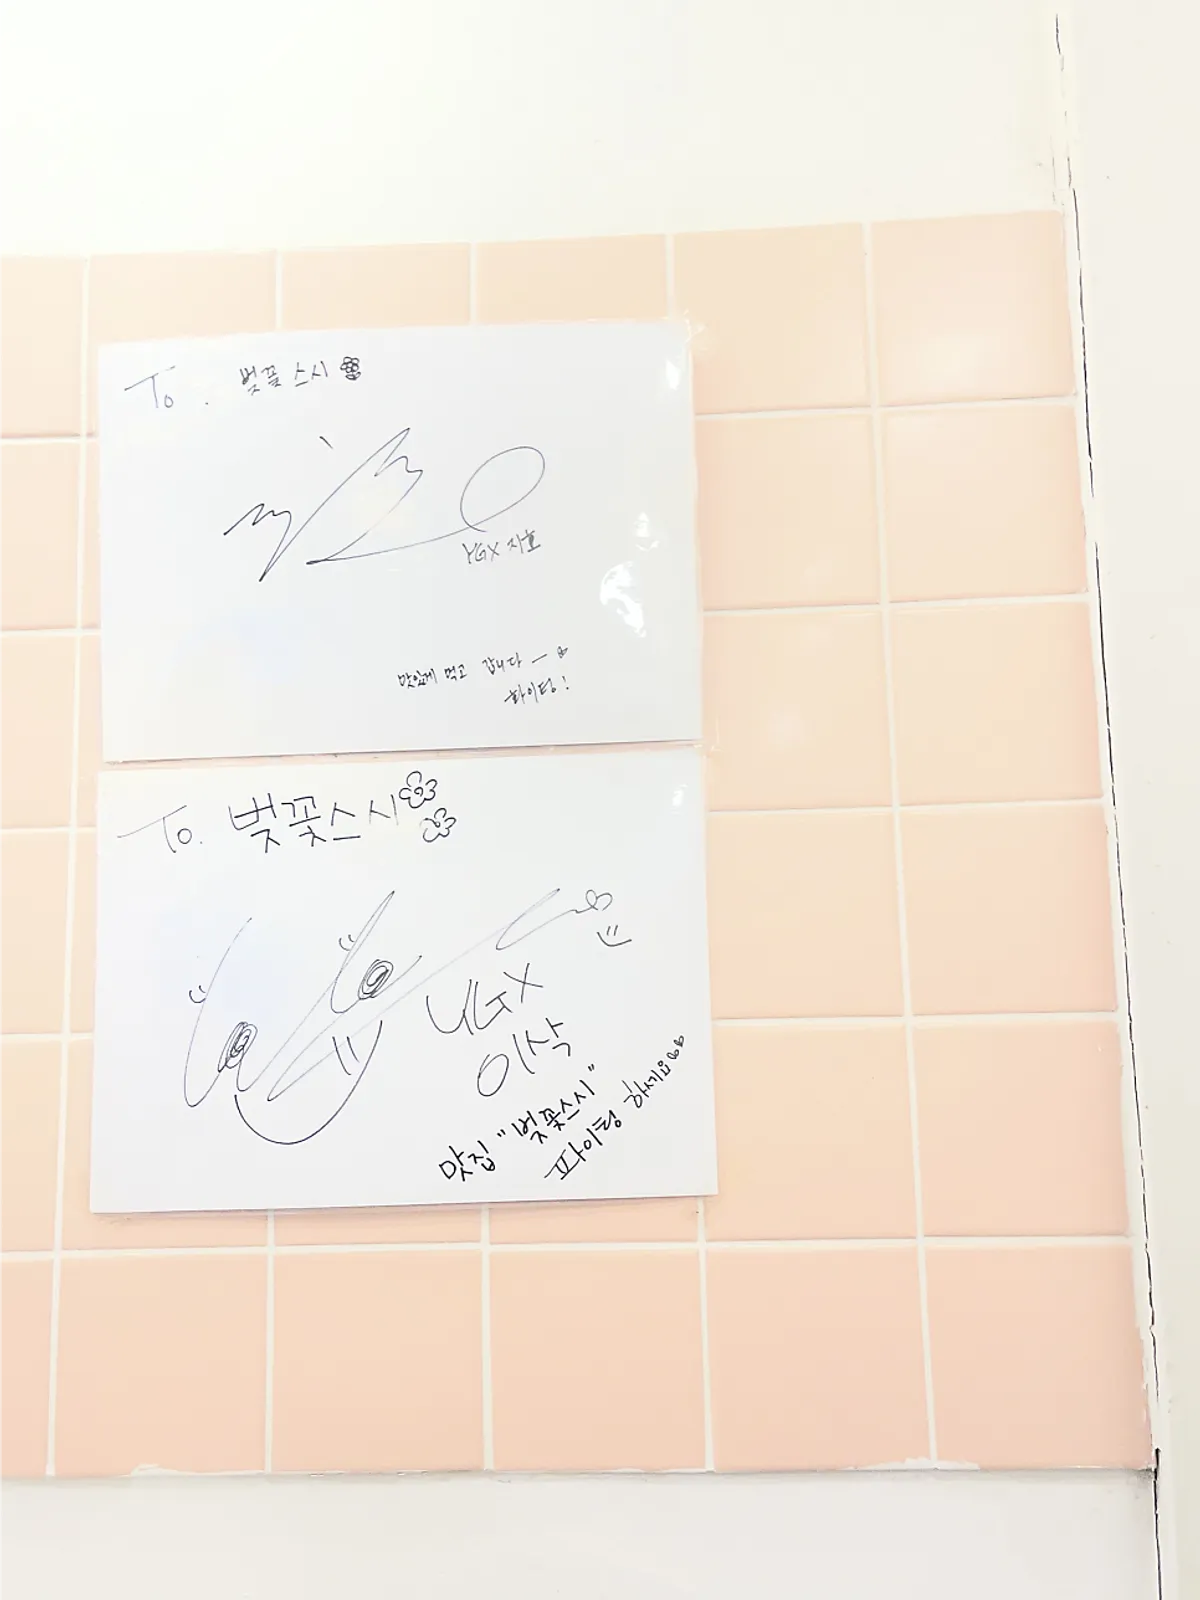 To. 벚꽃스시
YGX 지효
맛있게 먹고 갑니다 ―
화이팅!
To. 벚꽃스시
YGX
이삭
맛집 "벚꽃스시"
파이팅 하세요